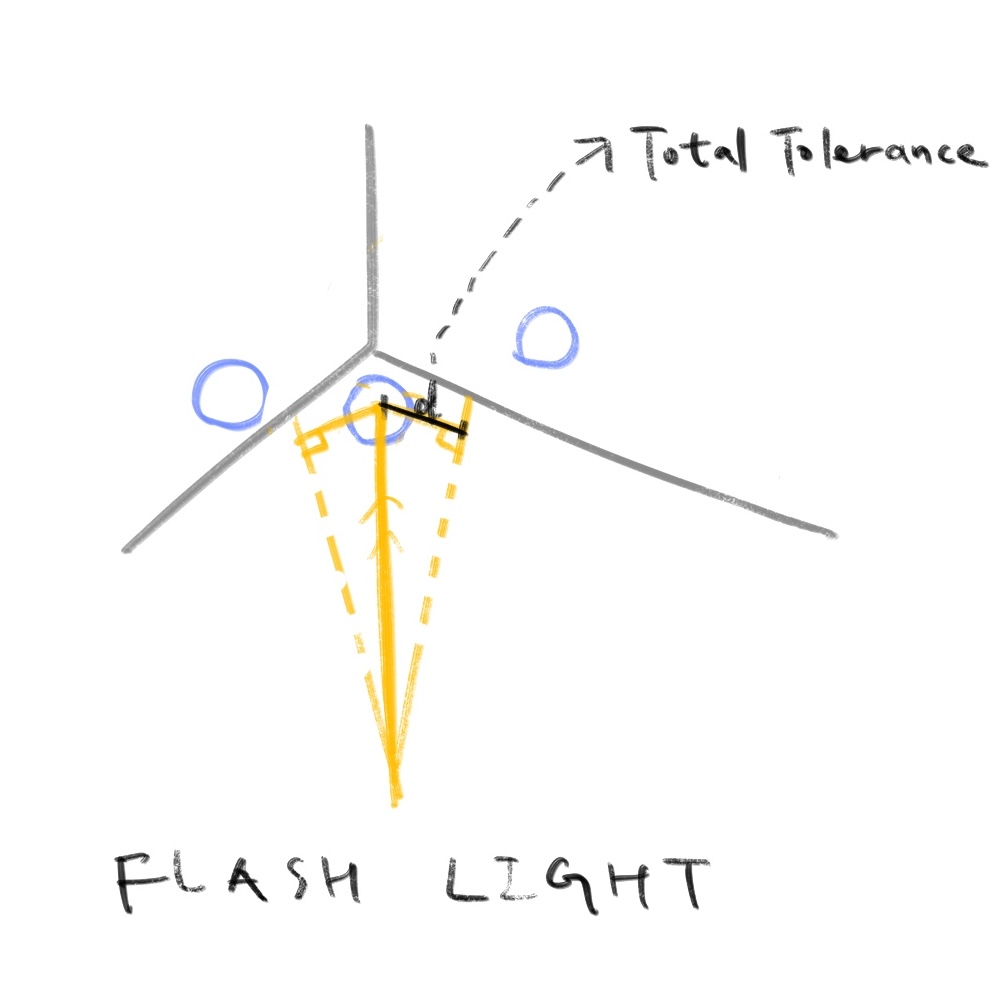 Total Tolerance
d
FLASH LIGHT